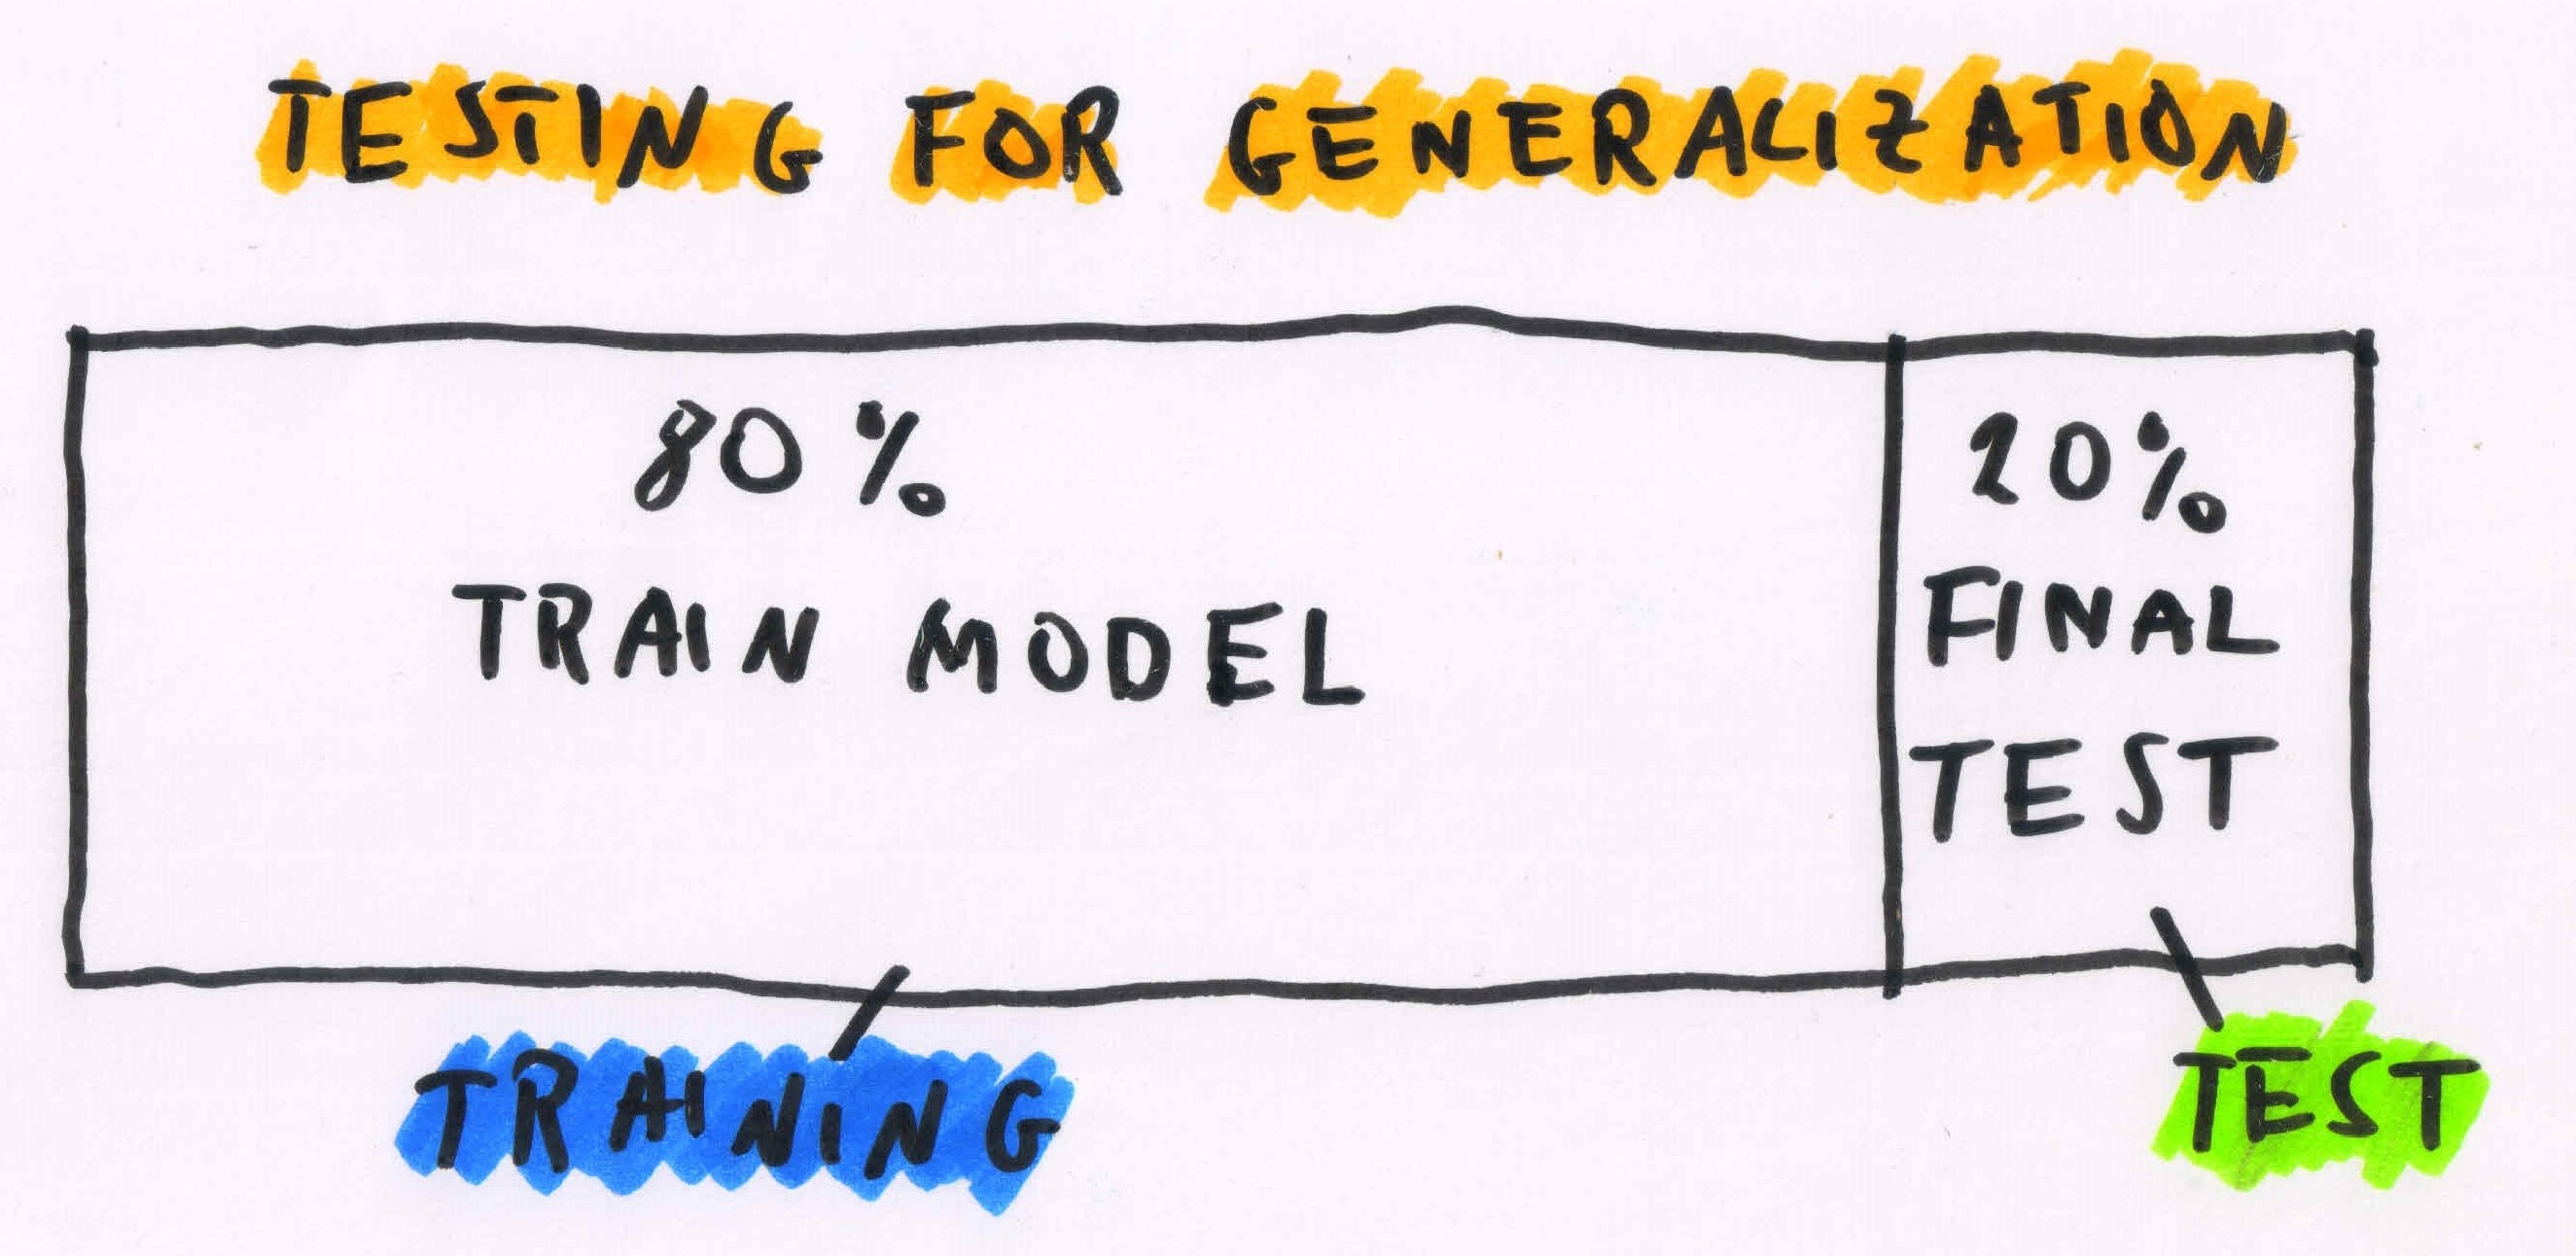 TESTING FOR GENERALIZATION
80%
TRAIN MODEL
20%
FINAL
TEST
TRAINING
TEST